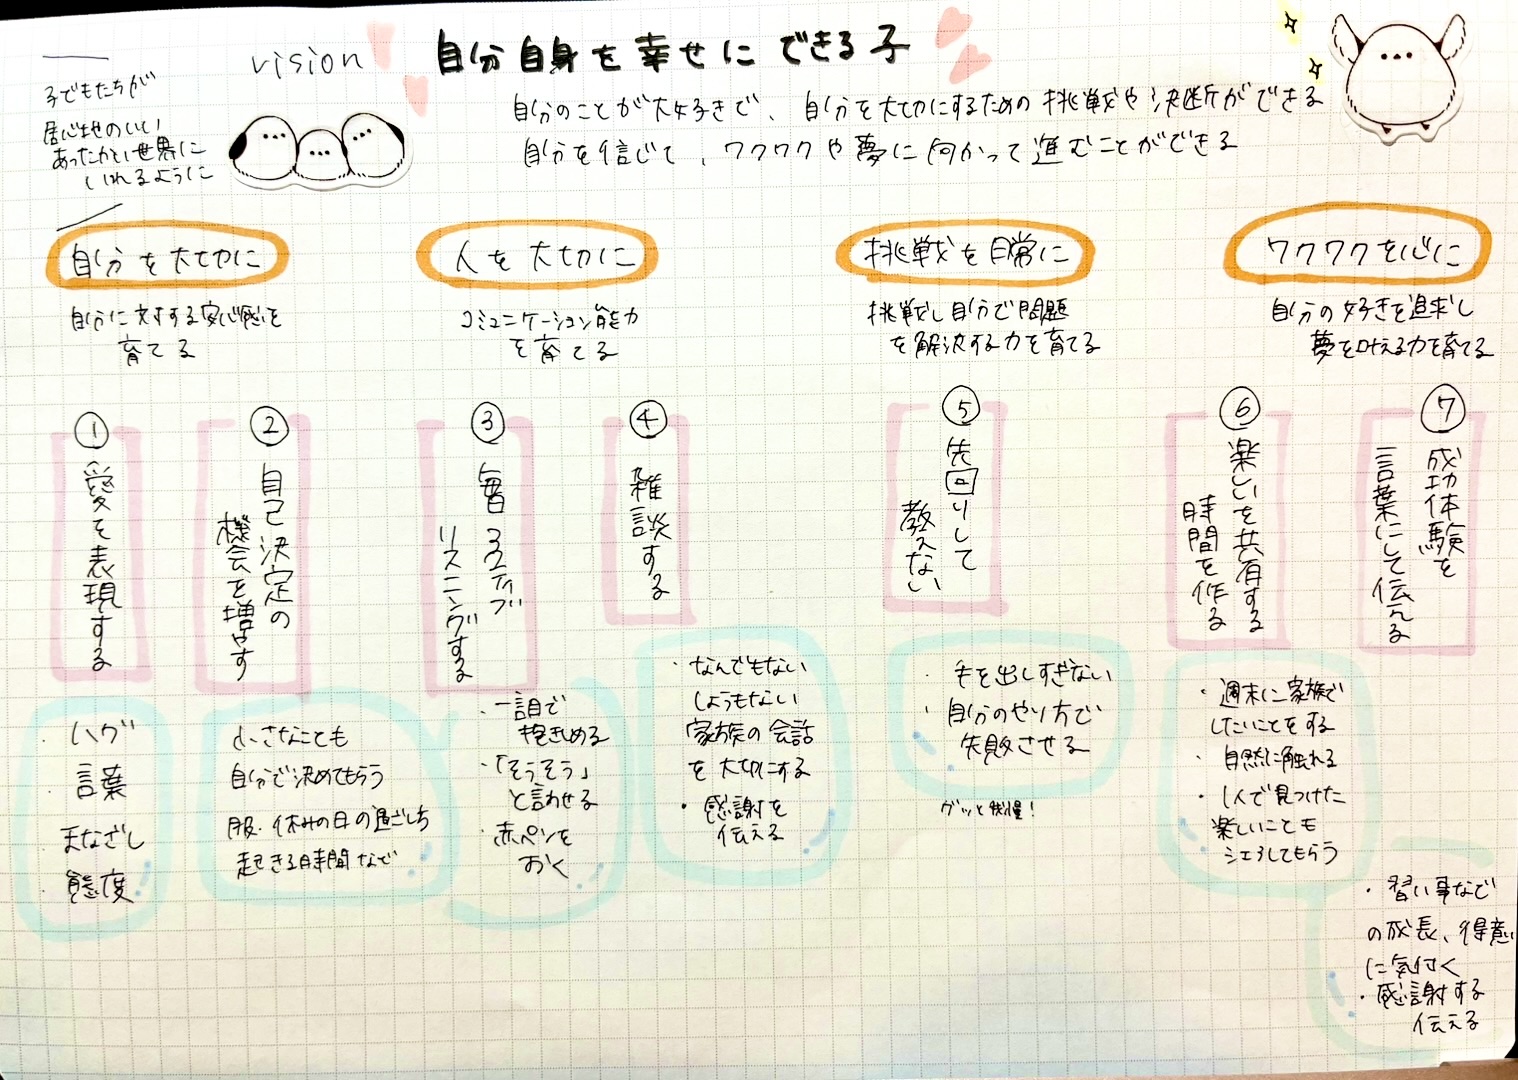 vision
自分自身を幸せにできる子
自分のことが大好きで、自分を大切にするための挑戦や決断ができる
自分を信じて、ワクワクや夢に向かって進むことができる
子どもたちが
居心地のいい
あったかい世界に
いれるように
自分を大切に
自分に対する安心感を
育てる
人を大切に
コミュニケーション能力
を育てる
挑戦を日常に
挑戦し自分で問題
を解決する力を育てる
ワクワクを心に
自分の好きを追求し
夢を叶える力を育てる
①
愛を表現する
・ハグ
・言葉
・まなざし
・態度
②
自己決定の
機会を増やす
小さなことも
自分で決めてもらう
服・休みの日の過ごし方
起きる時間など
③
毎日アクティブ
リスニングする
・一言目で
抱きしめる
・「そうそう」
と言わせる
・赤ペンを
おく
④
雑談する
・なんでもない
しょうもない
家族の会話
を大切にする
・感謝を
伝える
⑤
先回りして
教えない
・手を出しすぎない
・自分のやり方で
失敗させる
グッと我慢!
⑥
楽しいを共有する
時間を作る
・週末に家族で
したいことをする
・自然に触れる
・1人で見つけた
楽しいことも
シェアしてもらう
⑦
成功体験を
言葉にして伝える
・習い事など
の成長、得意
に気付く
・感謝する
伝える